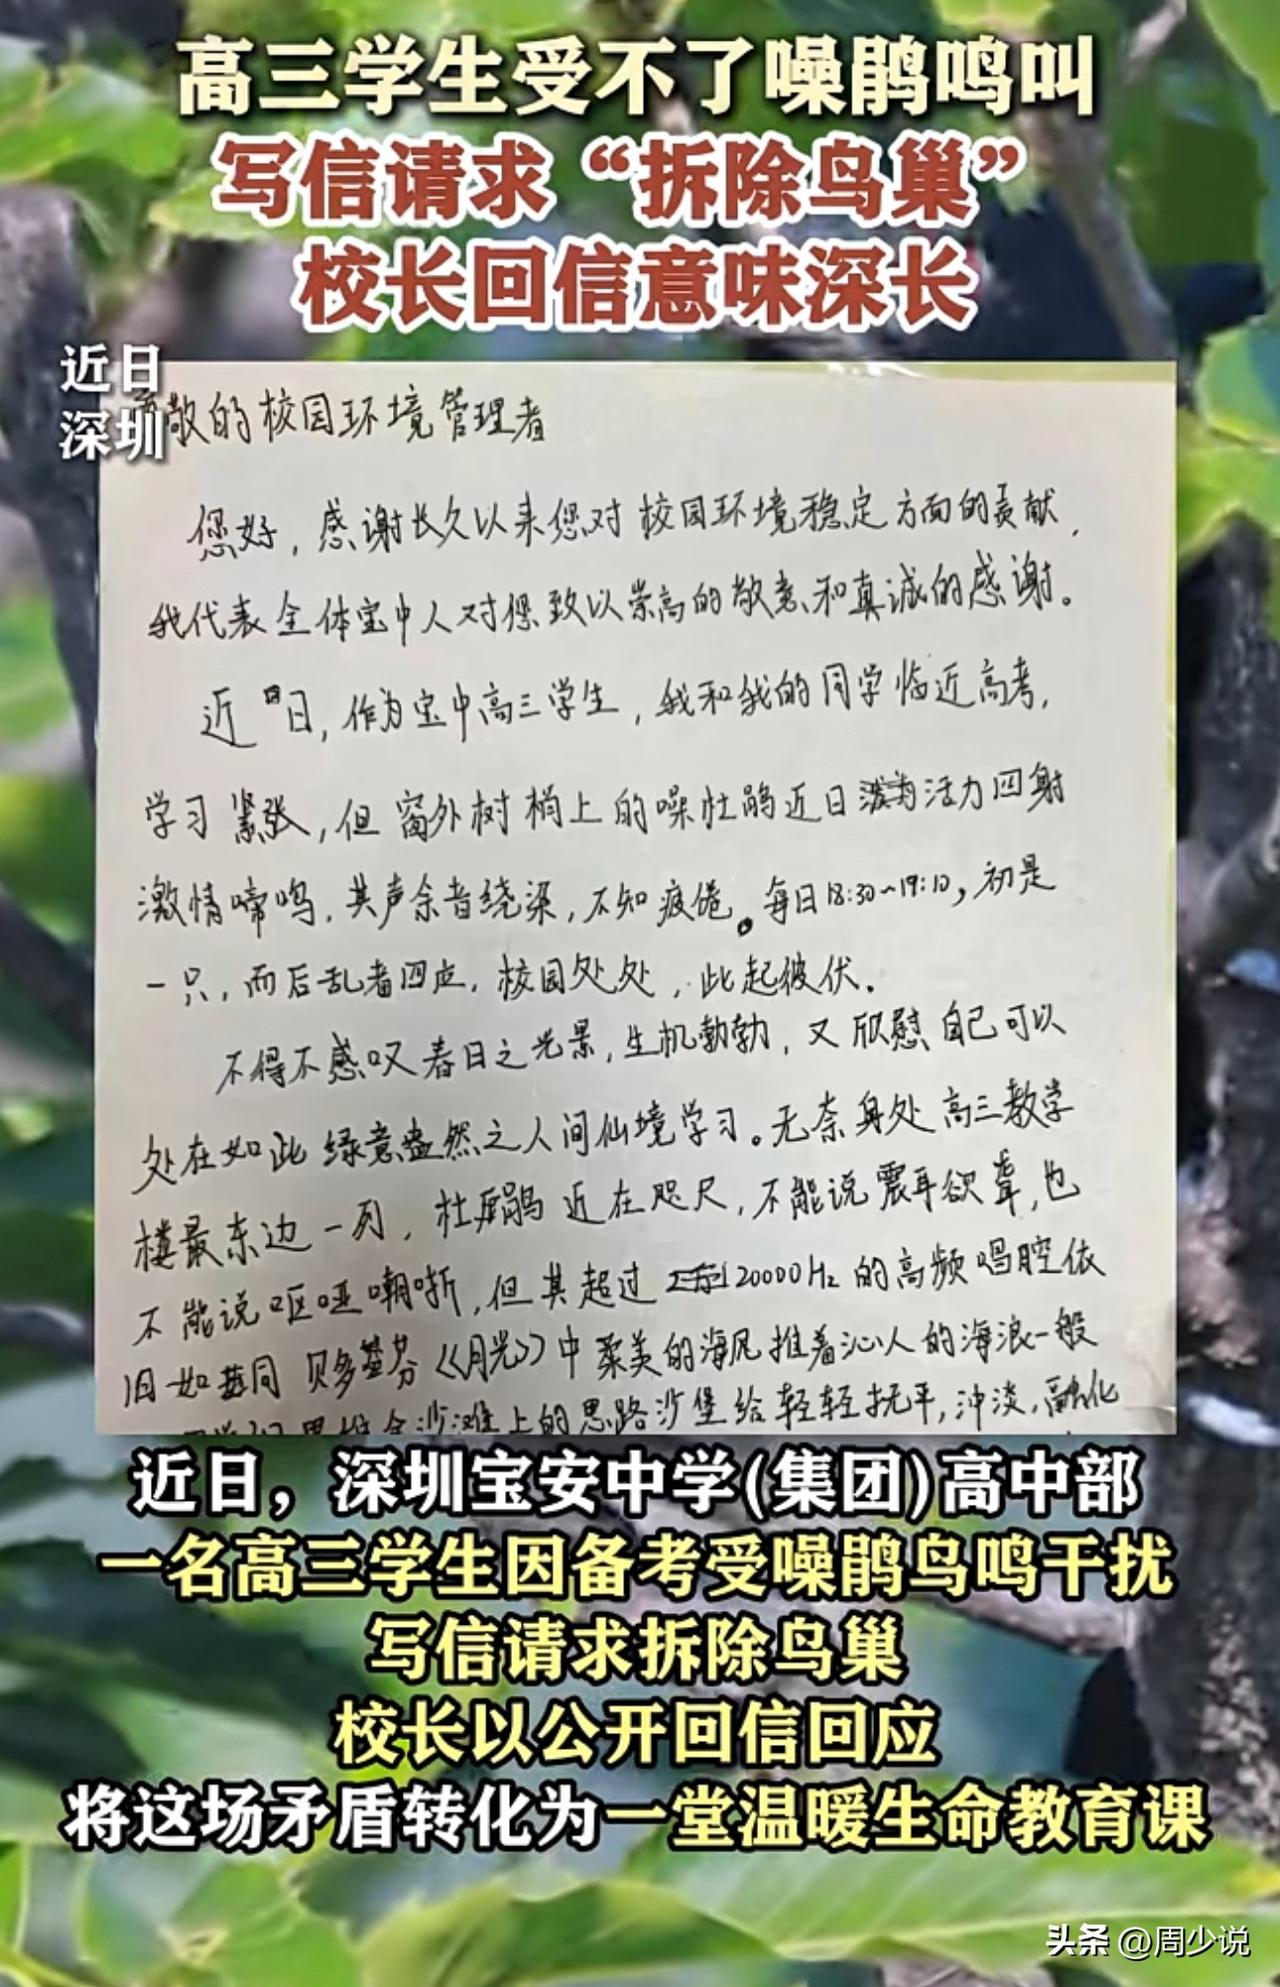 高三学生受不了噪鹃鸣叫
写信请求“拆除鸟巢”
校长回信意味深长
近日
深圳
敬的校园环境管理者
您好，感谢长久以来您对校园环境稳定方面的贡献，
我代表全体宝中人对您致以崇高的敬意和真诚的感谢。
近日，作为宝中高三学生，我和我的同学临近高考，
学习紧张，但窗外树梢上的噪杜鹃近日活力四射
激情啼鸣，其声余音绕梁，不知疲倦。每日18:30~19:10，初是
一只，而后乱者四应，校园处处，此起彼伏。
不得不感叹春日之光景，生机勃勃，又欣慰自己可以
处在如此绿意盎然之人间仙境学习。无奈身处高三教学
楼最东边一列，杜鹃近在咫尺，不能说震耳欲聋，也
不能说呕哑嘲哳，但其超过20000Hz的高频唱腔依
旧如同贝多芬《月光》中柔美的海风推着沁人的海浪一般
沙滩上的思路沙堡给轻轻抚平，冲淡，融化
近日，深圳宝安中学(集团)高中部
一名高三学生因备考受噪鹃鸟鸣干扰
写信请求拆除鸟巢
校长以公开回信回应
将这场矛盾转化为一堂温暖生命教育课
头条 @周少说